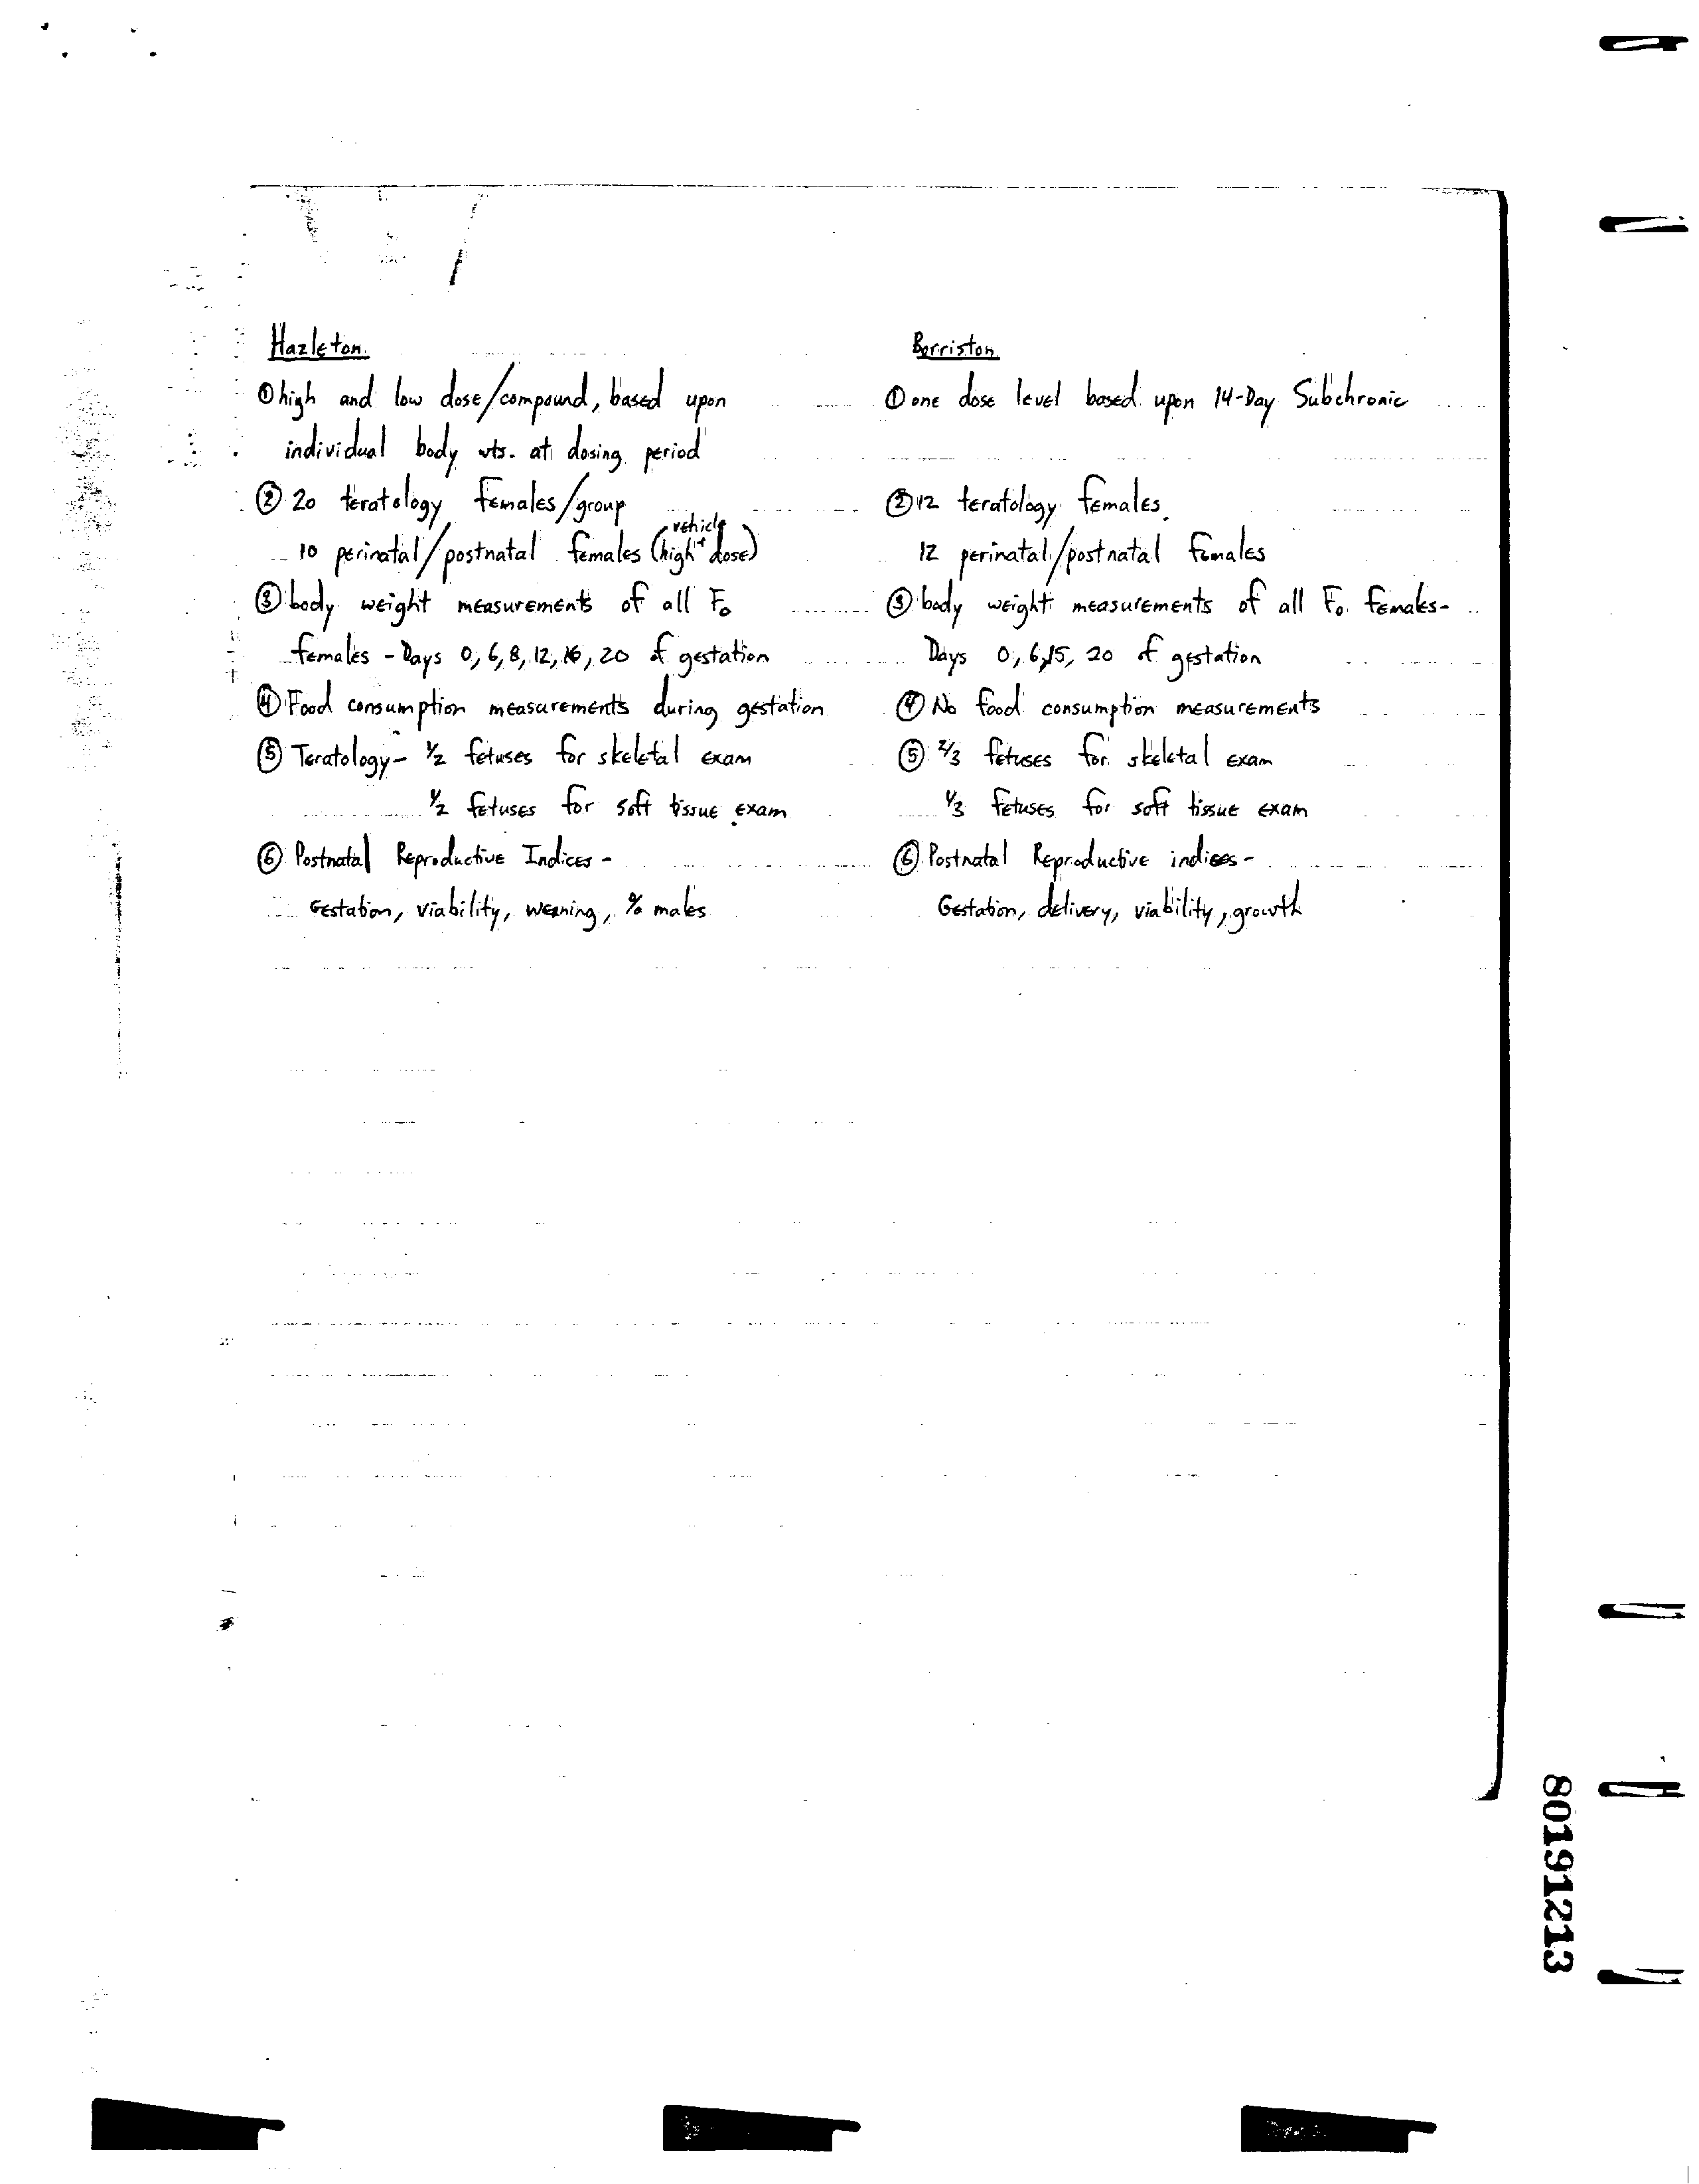 Hazleton
① high and low dose/compound, based upon
individual body wts. at dosing period
② 20 teratology females/group
vehicle
10 perinatal/postnatal females (high + dose)
③ body weight measurements of all F₀
females - Days 0, 6, 8, 12, 16, 20 of gestation
④ Food consumption measurements during gestation
⑤ Teratology - ½ fetuses for skeletal exam
½ fetuses for soft tissue exam
⑥ Postnatal Reproductive Indices -
Gestation, viability, weaning, % males
Borriston
① one dose level based upon 14-Day Subchronic
② 12 teratology females
12 perinatal/postnatal females
③ body weight measurements of all F₀ females-
Days 0, 6, 15, 20 of gestation
④ No food consumption measurements
⑤ 2/3 fetuses for skeletal exam
1/3 fetuses for soft tissue exam
⑥ Postnatal Reproductive indices -
Gestation, delivery, viability, growth
80191213